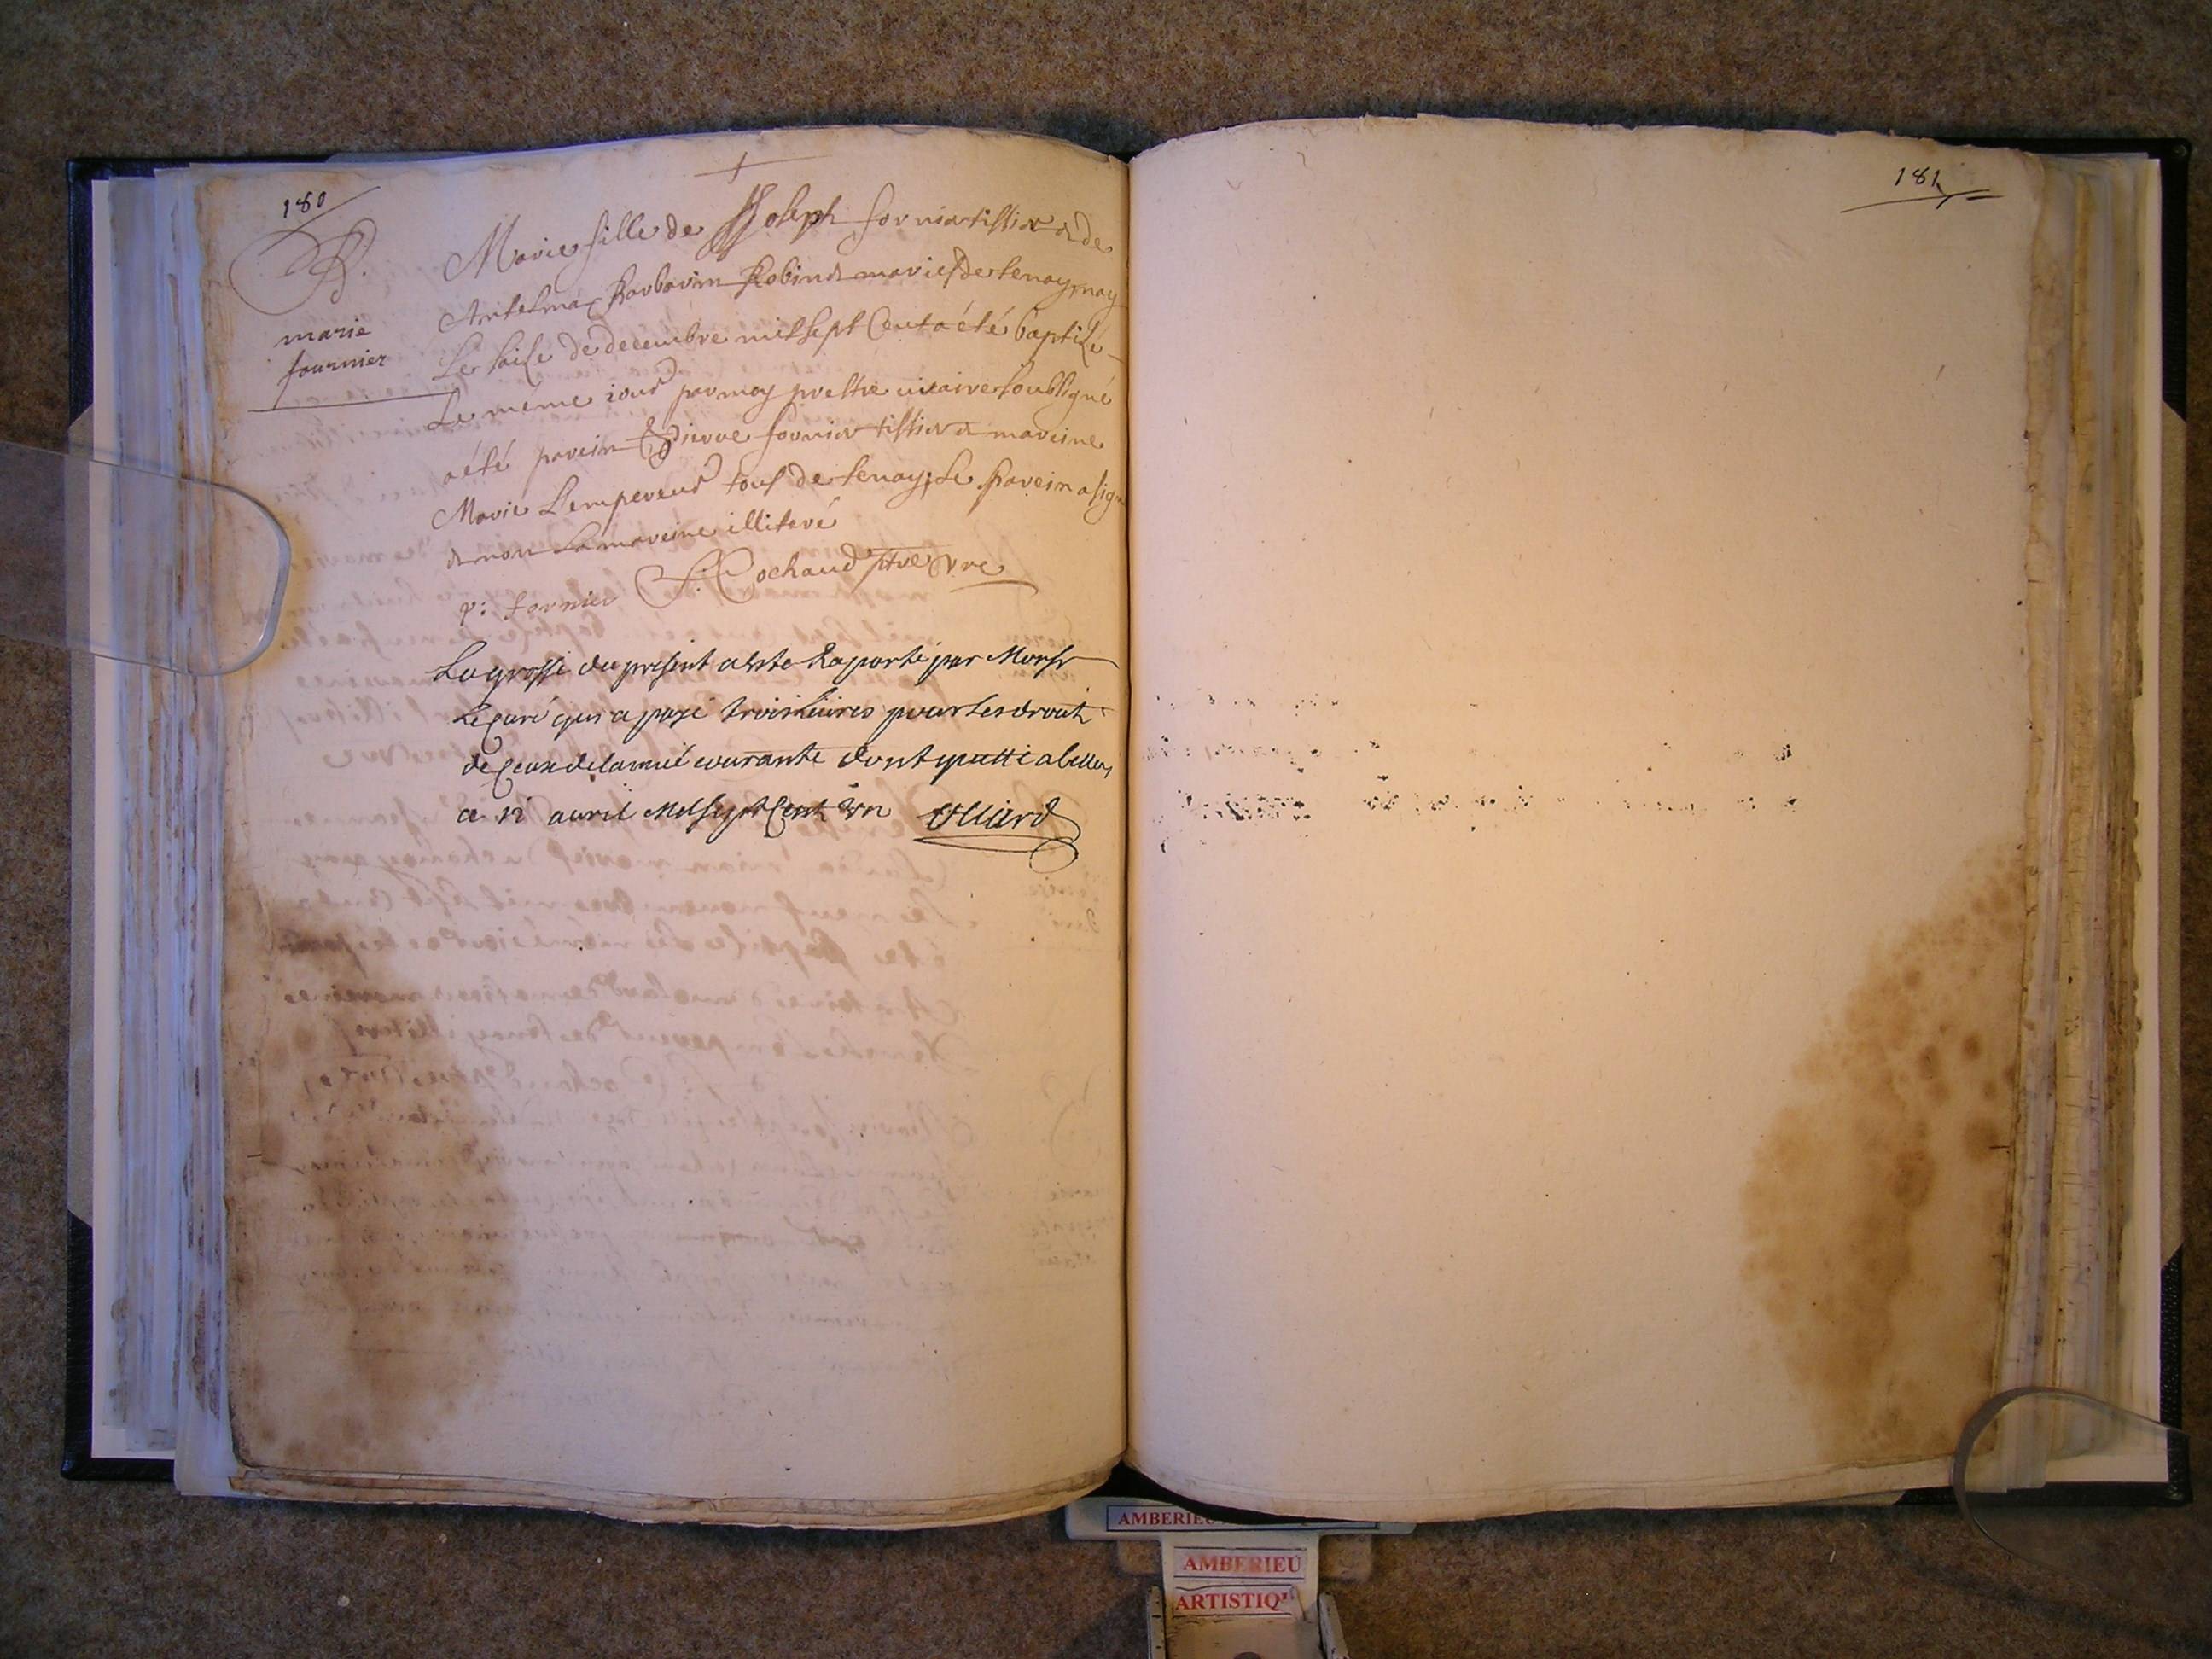 180
B.
marie
fournier
Marie fille de Joseph fornier tissier & de
Antelma Barbarin Robin & mariés de tenay, nay
Le saise de decembre mil sept Cent a été baptizé
Le meme iour par moy prestre vicaire soubsigné
a été parein Pierre fornier tissier & mareine
Marie Lempereur tous de tenay, Le Parein a signé
& non La mareine illiteré
p: fornier Cochaud ptre vre
La grosse du present a este Raporté par Monsr
Le Curé qui a payé trois liures pour les droits
de ceux de lannée courante dont quitté a belley
ce 12 avril Mil sept Cent Un
181
AMBERIEU
AMBERIEU
ARTISTIQ